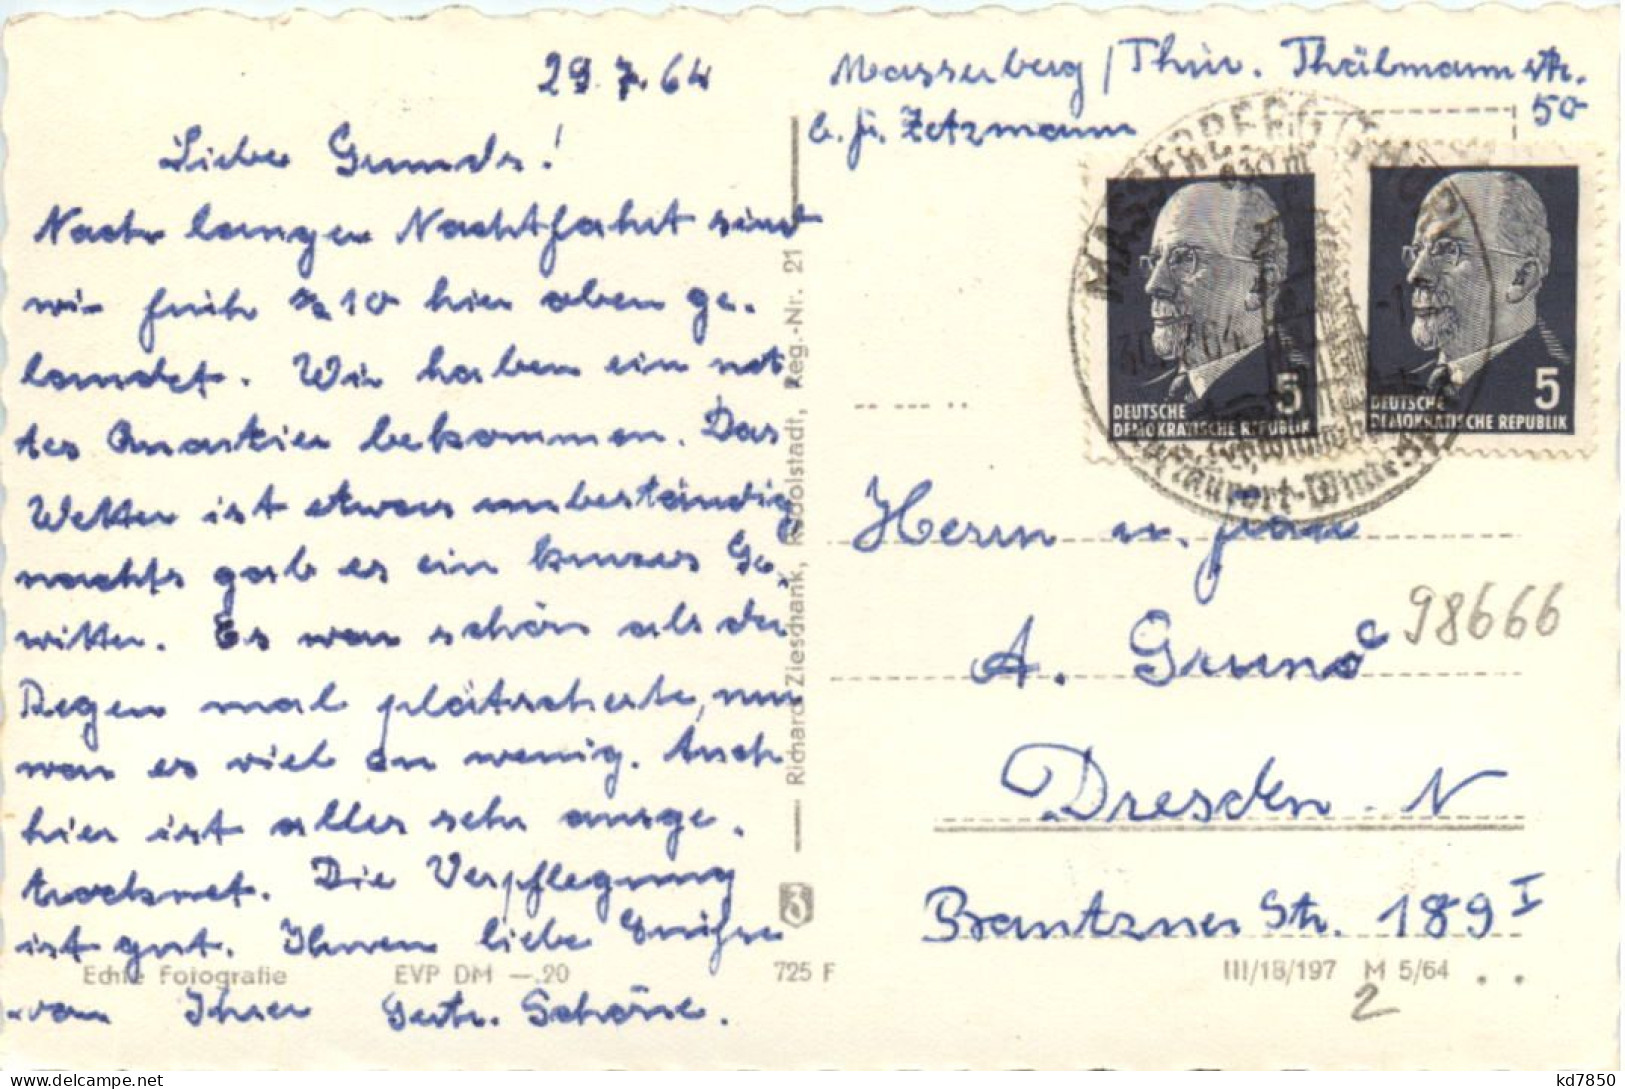 29.7.64
Liebe Grunds!
Nach langer Nachtfahrt sind
wir früh 10 hier oben ge-
landet. Wir haben ein net
tes Quartier bekommen. Das
Wetter ist etwas unbeständig
nachts gab es ein kurzes Ge-
witter. Es war schön als der
Regen mal plätscherte, nur
war es viel zu wenig. Auch
hier ist alles sehr ausge-
trocknet. Die Verpflegung
ist gut. Ihnen liebe Grüße
von Ihrer Gertr. Schöne.
Echte Fotografie EVP DM —.20 725 F
Richard Zieschank, Rudolstadt, Reg.-Nr. 21
Masserberg / Thür. Thälmannstr.
50
b. Fr. Zetzmann
MASSERBERG
30.7.64
DEUTSCHE
DEMOKRATISCHE REPUBLIK
5
DEUTSCHE
DEMOKRATISCHE REPUBLIK
5
Herrn u. Frau
A. Grund
98666
Dresden - N
Bautzner Str. 189 I
III/18/197 M 5/64
2
kd7850